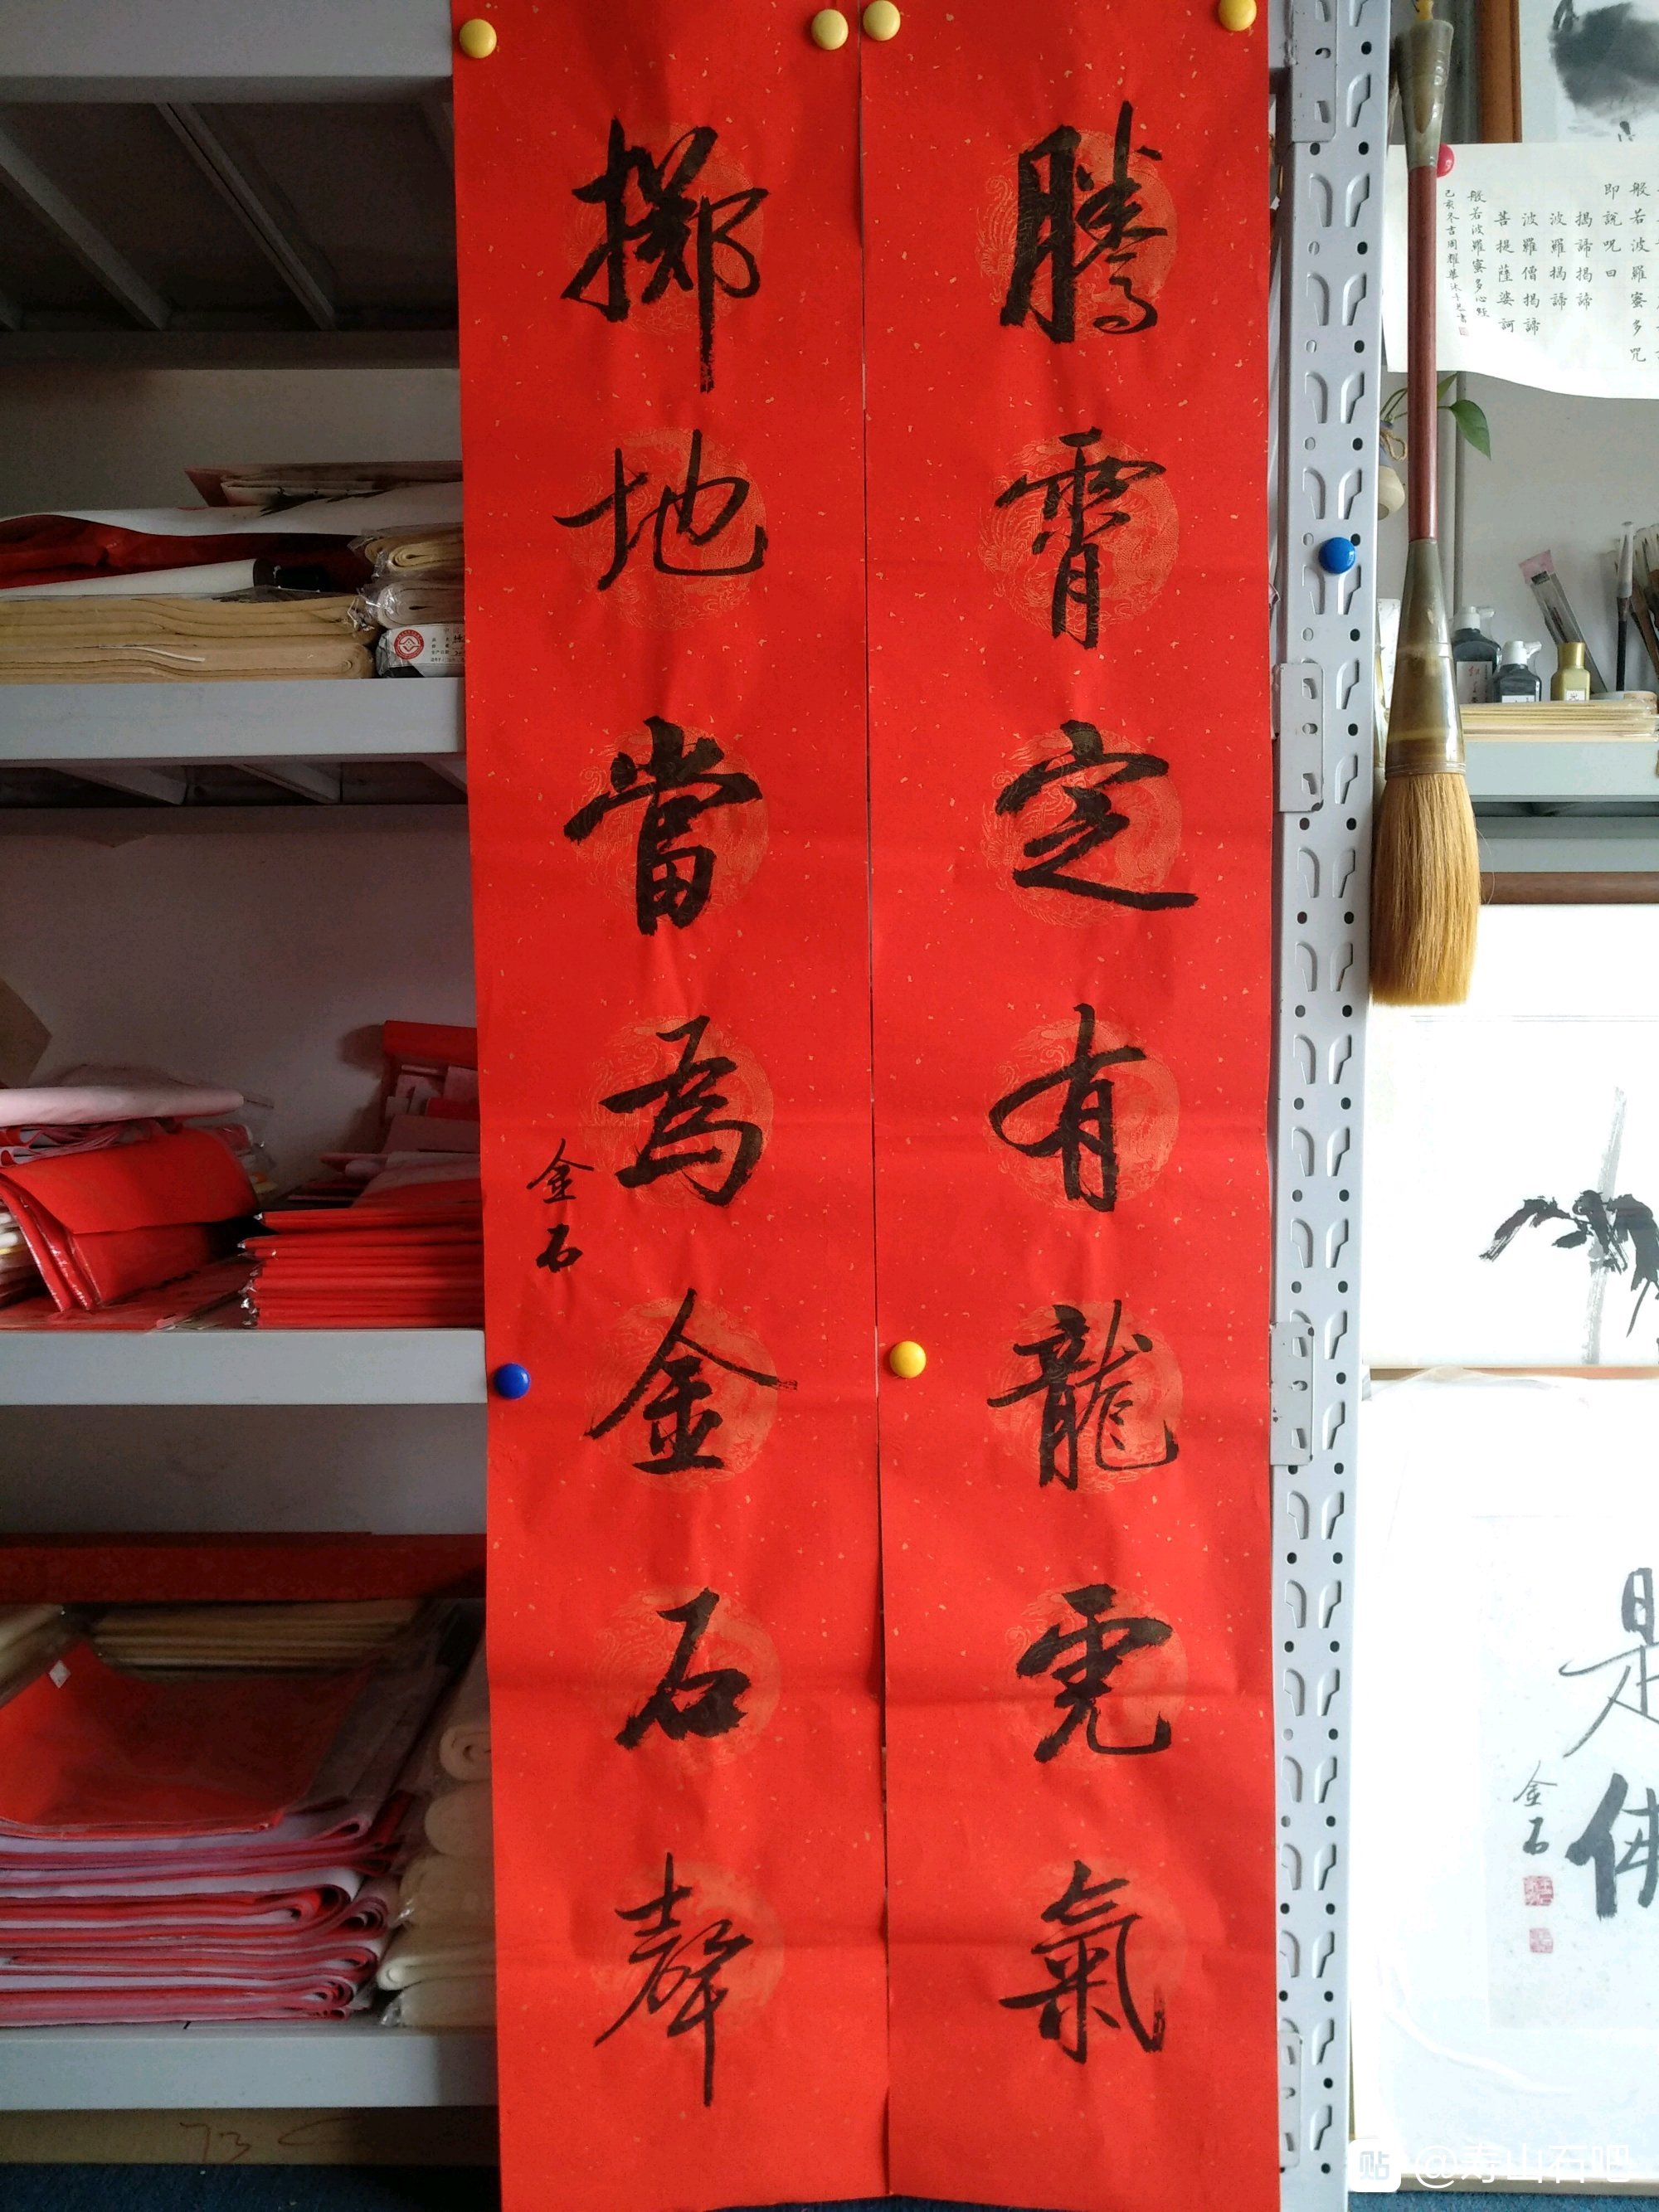 騰霄定有龍虎氣
擲地當為金石聲
金石
般若波羅蜜多
即說咒曰
揭諦揭諦
波羅揭諦
波羅僧揭諦
菩提薩婆訶
般若波羅蜜多心經
是佛
金石
貼 @寿山石吧